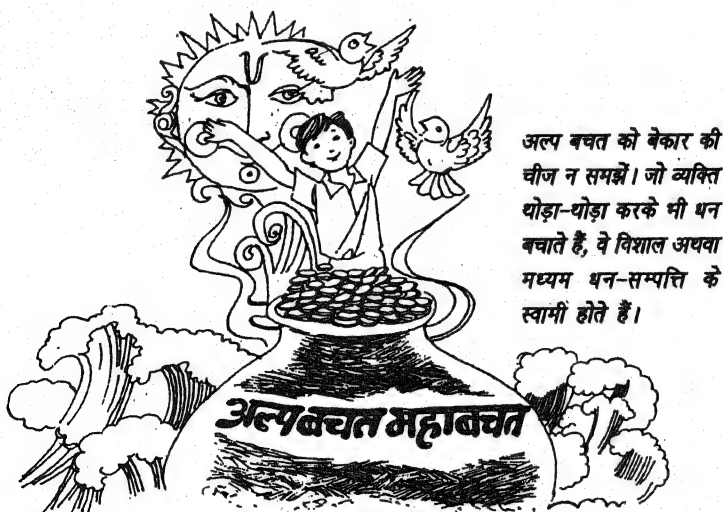 अल्प बचत को बेकार की
चीज न समझें। जो व्यक्ति
थोड़ा-थोड़ा करके भी धन
बचाते हैं, वे विशाल अथवा
मध्यम धन-सम्पत्ति के
स्वामी होते हैं।
अल्प बचत महाबचत